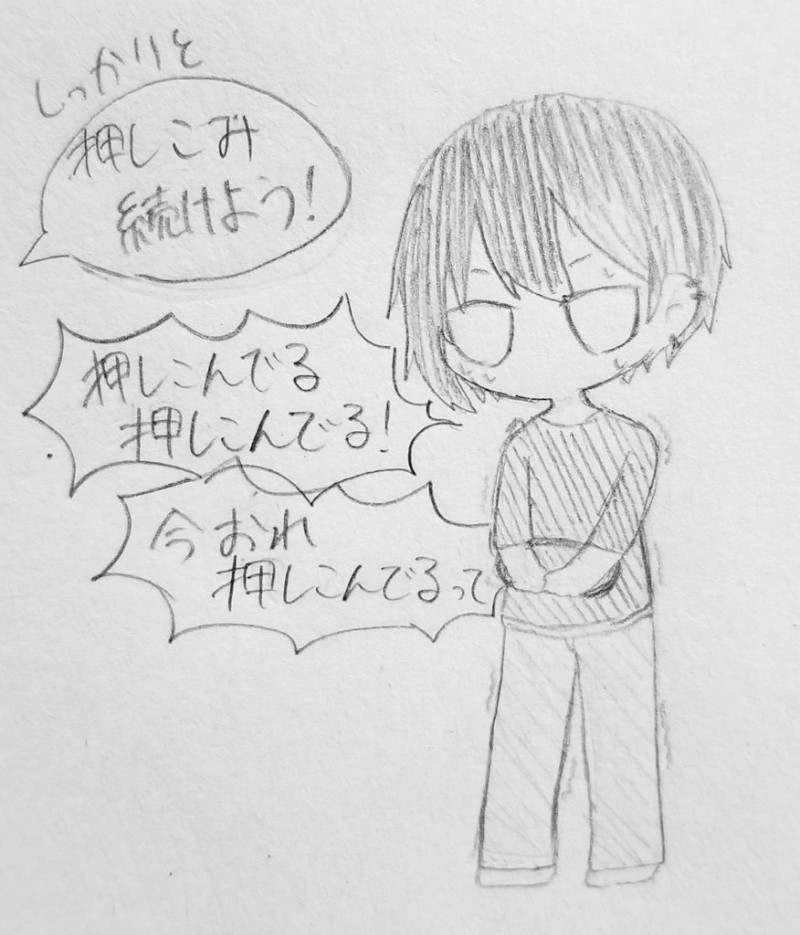 しっかりと
押しこみ
続けよう!
押しこんでる
押しこんでる!
今おれ
押しこんでるって